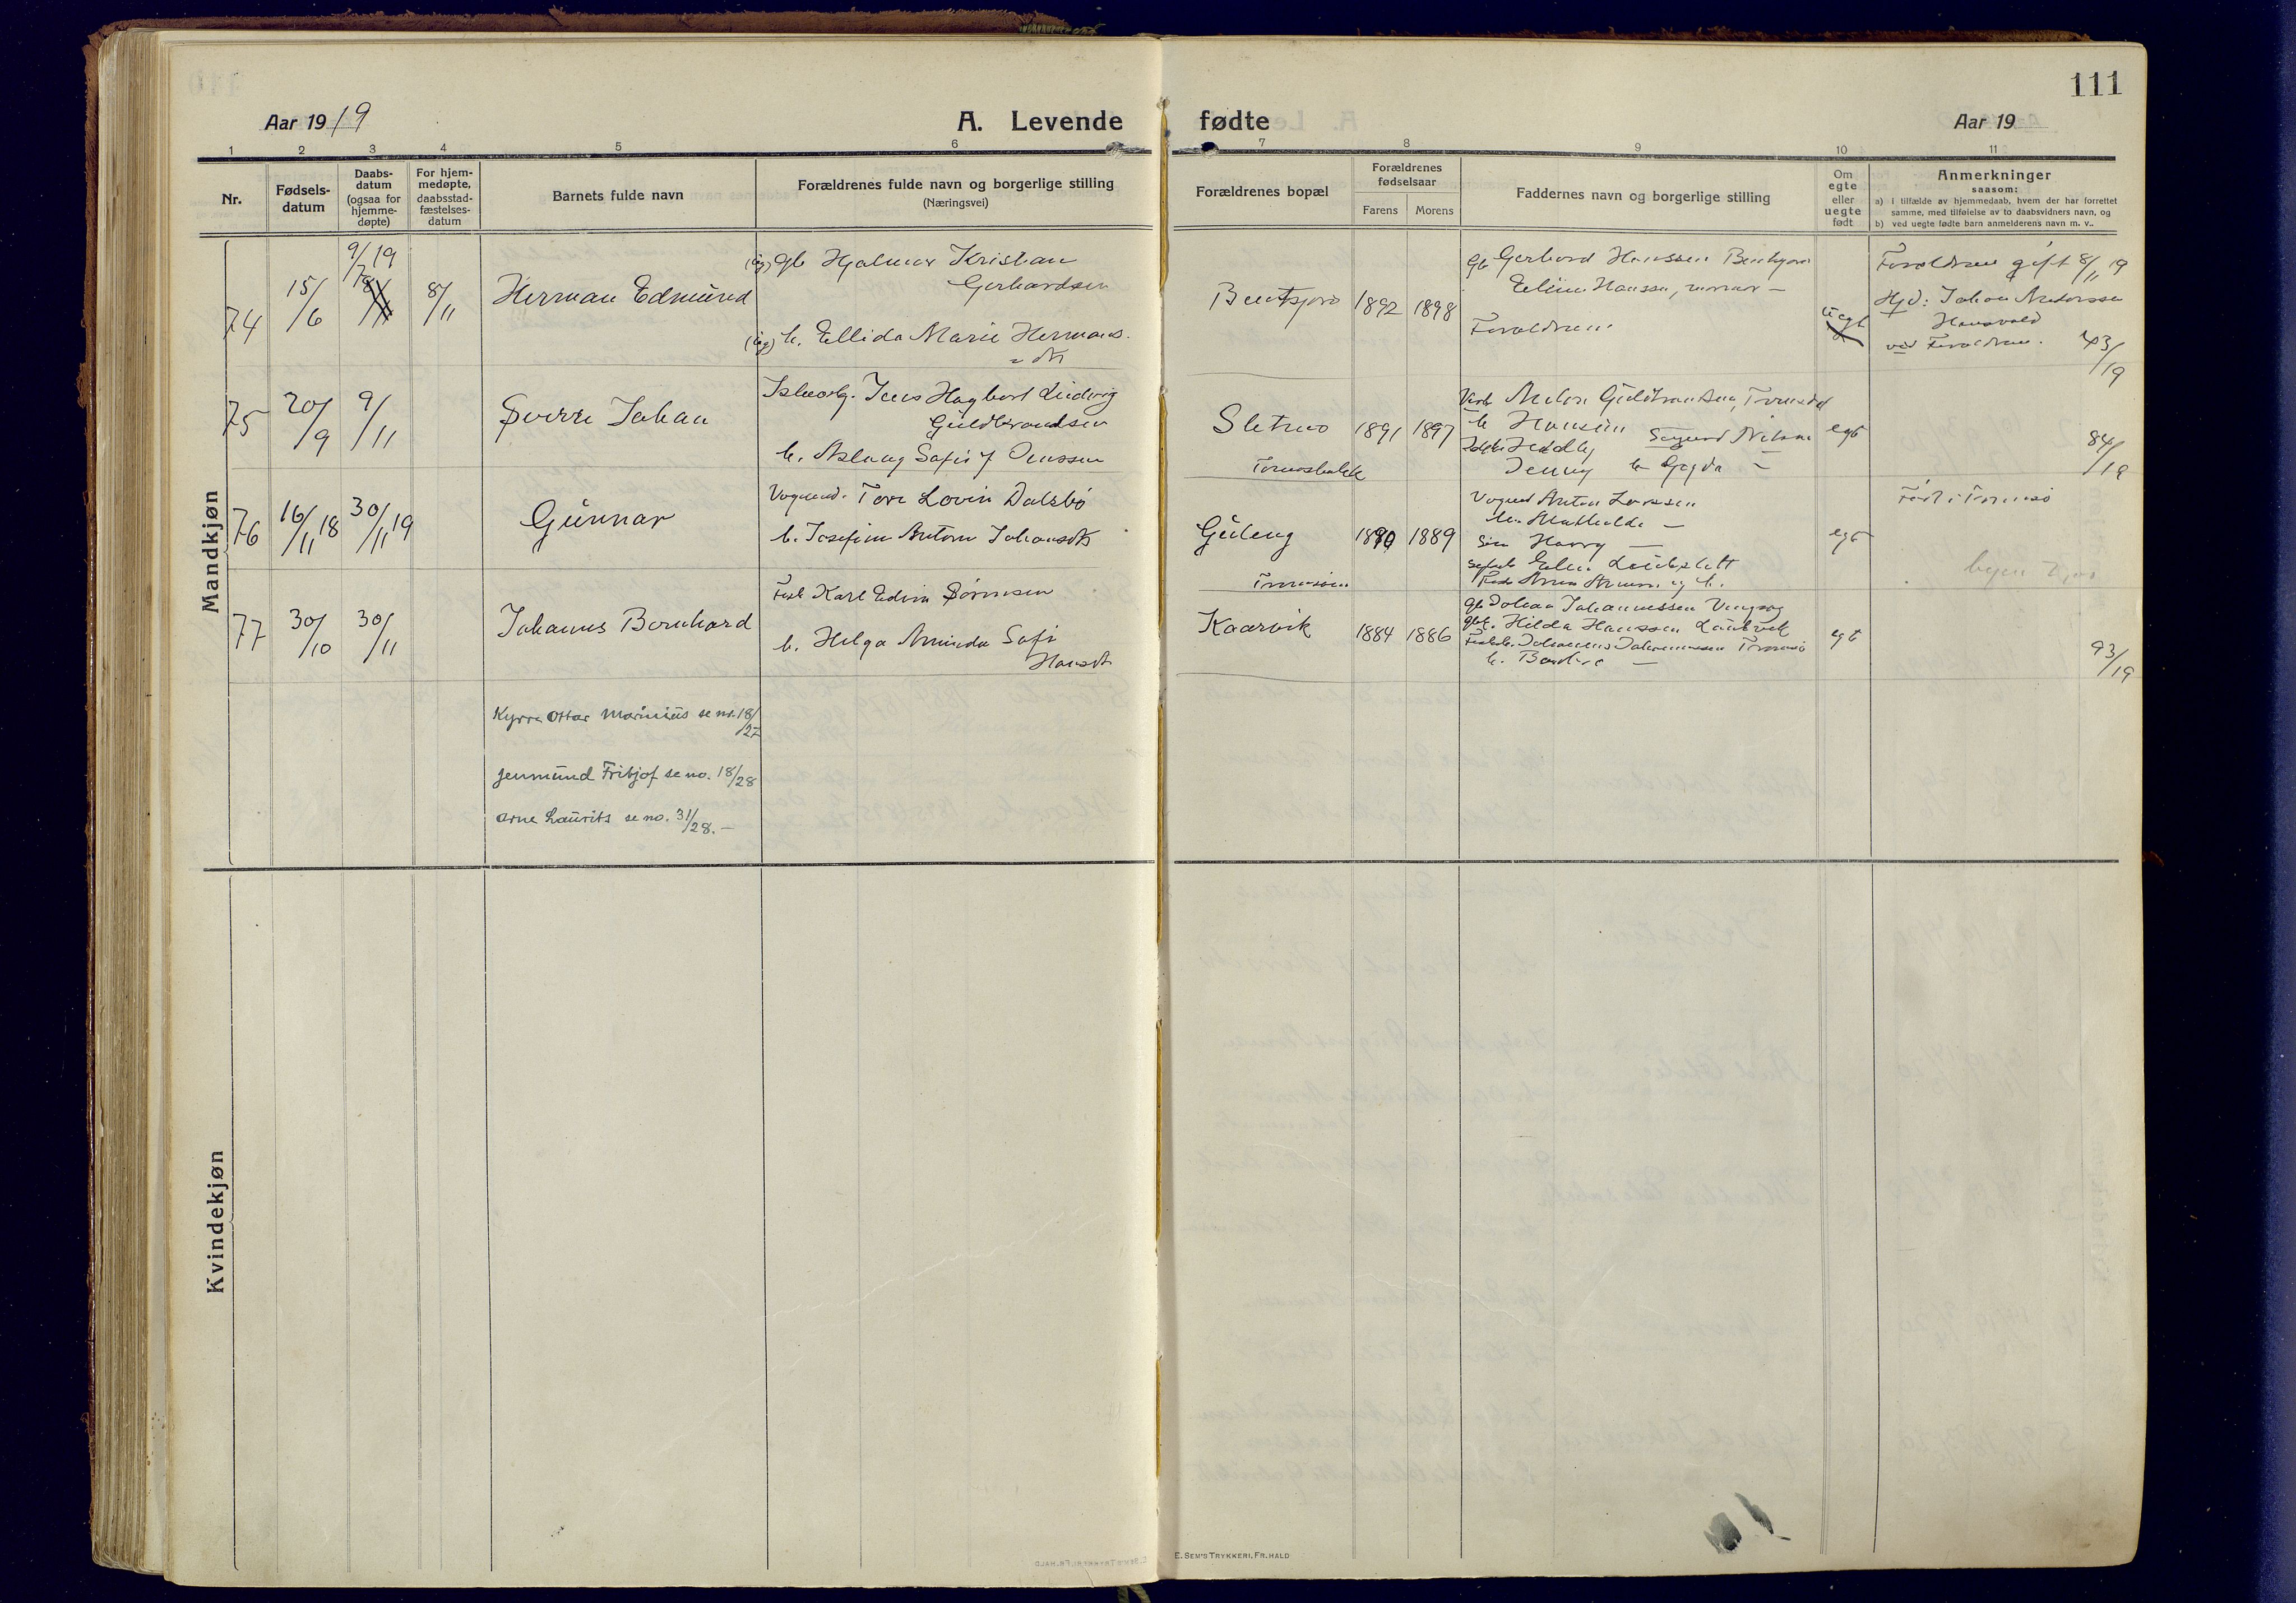 111
Aar 1919
A. Levende fødte
Aar 19
1 2 3 4 5 6 7 8 9 10 11
Nr.
Fødsels-
datum
Daabs-
datum
(ogsaa for
hjemme-
døpte)
For hjem-
medøpte,
daabsstad-
fæstelses-
datum
Barnets fulde navn
Forældrenes fulde navn og borgerlige stilling
(Næringsvei)
Forældrenes bopæl
Forældrenes
fødselsaar
Farens Morens
Faddernes navn og borgerlige stilling
Om
egte
eller
uegte
født
Anmerkninger
saasom:
a) i tilfælde av hjemmedaab, hvem der har forrettet
samme, med tilføielse av to daabsvidners navn, og
b) ved uegte fødte barn anmelderens navn m. v..
Mandkjøn
74
15/6
9/7 19
8/11
8/11
Herman Edmund
(ug) gb Hjalmar Kristian
Gerhardsen
(ug) h. Ellida Marie Hermans.
Bentsjoro
1892 1898
Gb Gerhard Hanssen Bentsjoro
Eline Hanssen,
Forældrene
uegt
Forældrene gift 8/11 19
Hjd: Johan
Hansvold
ved Forældrene.
43/19
75
20/9
9/11
Sverre Johan
Jens Hagbart Ludvig
Guldbrandsen
h. Aslaug Sofie f Jenssen
Sletnes
Tomasbukt
1891 1897
Anton Guldbrandsen, Tromsdal
h Hansine Sigurd Nilsen
Hedley
Jenny h Gyda —
egt
84/19
76
16/11 18
30/11 19
Gunnar
Vognmd. Tore Lovin Dalsbö
h. Josefine Antone Johansdtr
Guleng
Tromsöen
1890 1889
Vognmd Anton Larssen
h. Mathilde —
Sön Harry —
egt
Född i Tromsö
77
30/10
30/11
Johannes Bernhard
Fisk Karl Edvin Sörensen
h. Helga Aminda Sofie
Hansdtr
Kaarvik
1884 1886
gb Johan Johannessen Vengsøy
gbk. Hilda Hanssen Laukvik
Fiskeb. Johannes Johannessen Tromsö
egt
93/19
Kyrre Ottar Marinius se nr. 18/27
Jenmund Fritjof se no. 18/28
Arne Laurits se no. 31/28. —
Kvindekjøn
E. SEM'S TRYKKERI, FR.HALD